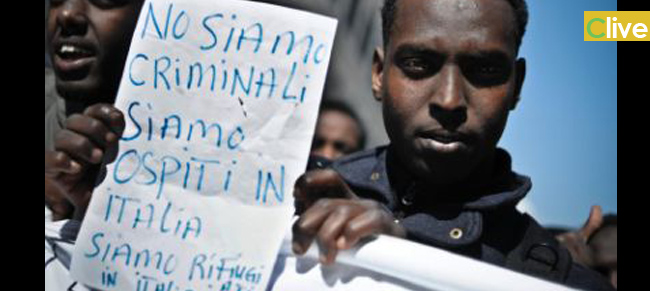 NO SIAMO
CRIMINALI
SIAMO
OSPITI IN
ITALIA
SIAMO RIFUGI
IN ITALIA
Clive